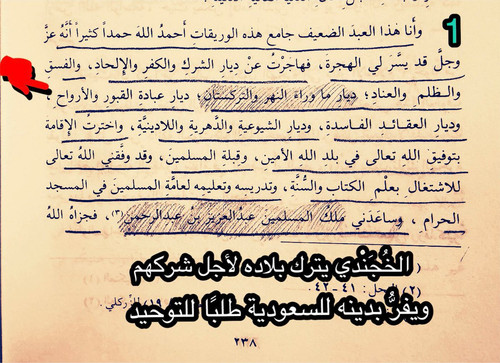 1
وأنا هذا العبد الضعيف جامع هذه الوريقات أحمدُ اللهَ حمداً كثيراً أنَّهُ عزَّ
وجلَّ قد يسَّرَ لي الهجرة، فهاجرْتُ عنْ دِيارِ الشركِ والكفرِ والإِلحادِ، والفسقِ
والظلمِ والعنادِ؛ ديارِ ما وراءَ النهر والتركستان؛ ديار عبادة القبور والأرواح،
وديار العقـائـد الفـاسـدةِ، وديارِ الشيـوعيةِ والدَّهريةِ واللادينيَّةِ، واخترتُ الإِقامةَ
بتوفيق اللهِ تعالى في بلدِ اللهِ الأمين، وقبلة المسلمين، وقد وفَّقني اللهُ تعالى
للاشتغال بعلْمِ الكتابِ والسُّنَّةِ، وتدريسه وتعليمِه لعامَّةِ المسلمينَ في المسجد
الحرام، وساعَدني ملكُ المسلمين عبدُالعزيز بنُ عبدالرحمن(٣)، فجزاهُ اللهُ
الخُجَنْدي يترك بلاده لأجل شركهم
(٢) النحل: ٤١ - ٤٢.
ويفرُّ بدينه للسعودية طلبًا للتوحيد
٢٣٨